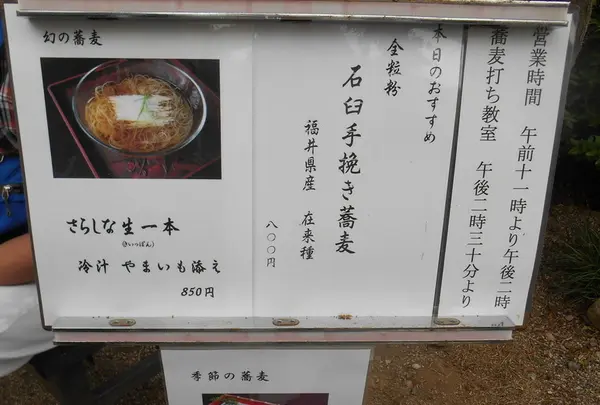 営業時間 午前十一時より午後二時
蕎麦打ち教室 午後二時三十分より
本日のおすすめ
全粒粉
石臼手挽き蕎麦
福井県産 在来種
八〇〇円
幻の蕎麦
さらしな生一本
(きいっぽん)
冷汁 やまいも添え
850円
季節の蕎麦